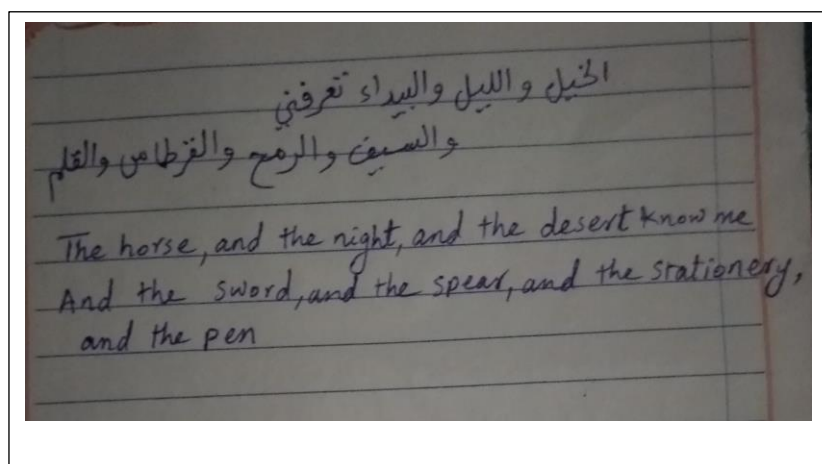 الخيل و الليل والبيداء تعرفني
والسيف والرمح والقرطاس والقلم
The horse, and the night, and the desert know me
And the sword, and the spear, and the stationery,
and the pen